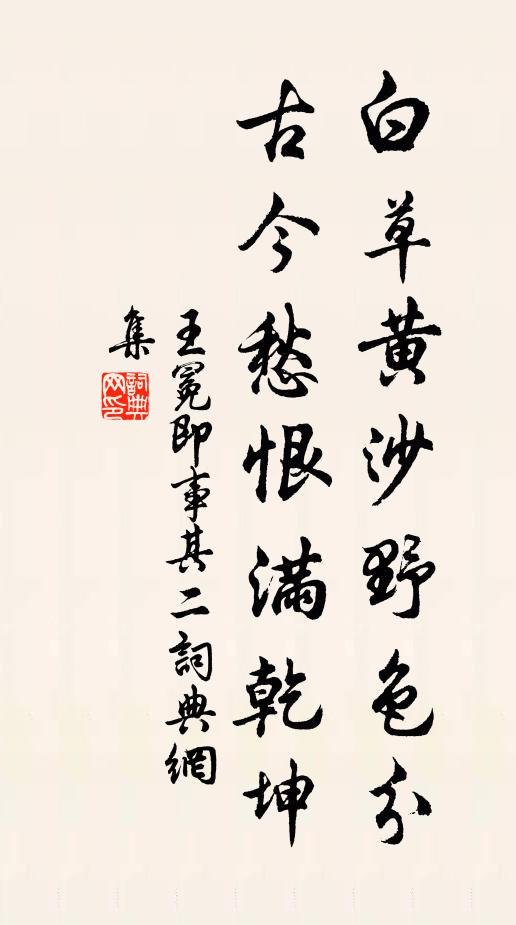 白草黄沙野色分
古今愁恨滿乾坤
王冕即事其二詞典網
集
詞典
网印